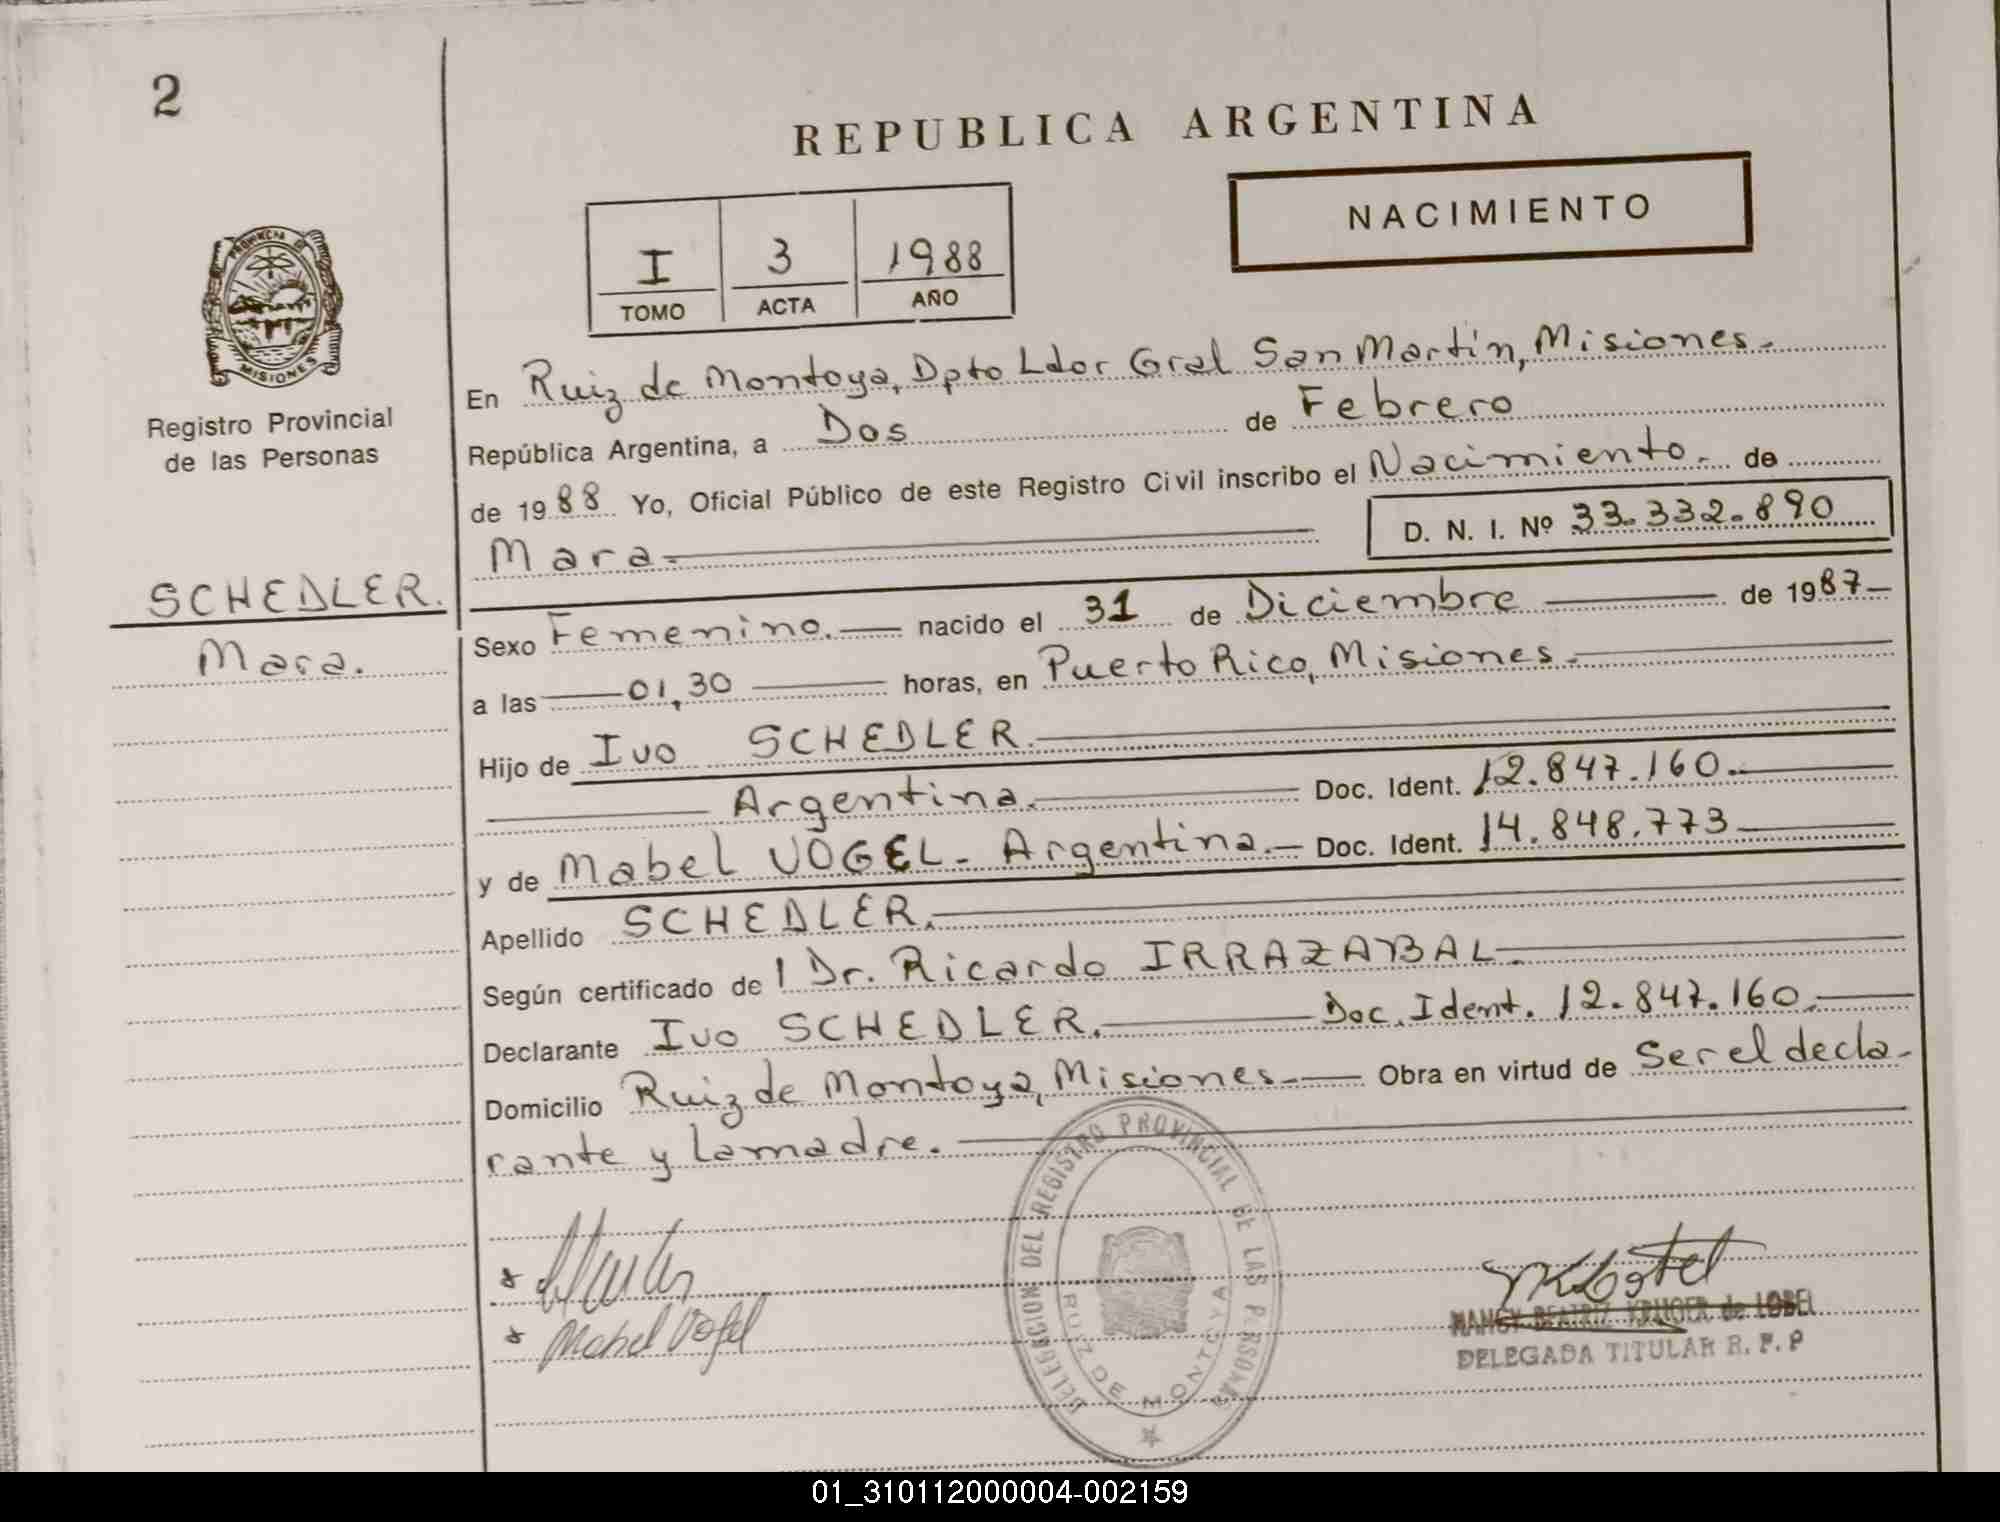 2
REPUBLICA ARGENTINA
NACIMIENTO
I 3 1988
TOMO ACTA AÑO
PROVINCIA DE
MISIONES
Registro Provincial
de las Personas
SCHEDLER.
Mara.
En Ruiz de Montoya, Dpto Ldor Gral San Martín, Misiones.
República Argentina, a Dos de Febrero
de 1988 Yo, Oficial Público de este Registro Civil inscribo el Nacimiento. de
Mara. D. N. I. Nº 33.332.890
Sexo Femenino. nacido el 31 de Diciembre de 1987
a las 01,30 horas, en Puerto Rico, Misiones.
Hijo de Ivo SCHEDLER.
Argentina. Doc. Ident. 12.847.160.
y de Mabel VOGEL - Argentina. Doc. Ident. 14.848.773
Apellido SCHEDLER.
Según certificado de Dr. Ricardo IRRAZABAL.
Declarante Ivo SCHEDLER. Doc. Ident. 12.847.160.
Domicilio Ruiz de Montoya, Misiones. Obra en virtud de Ser el decla-
rante y la madre.
Mabel Vogel
DELEGACION DEL REGISTRO PROVINCIAL DE LAS PERSONAS
RUIZ DE MONTOYA
NANCY BEATRIZ KRUGER de LOBEL
DELEGADA TITULAR R. P. P
01_310112000004-002159